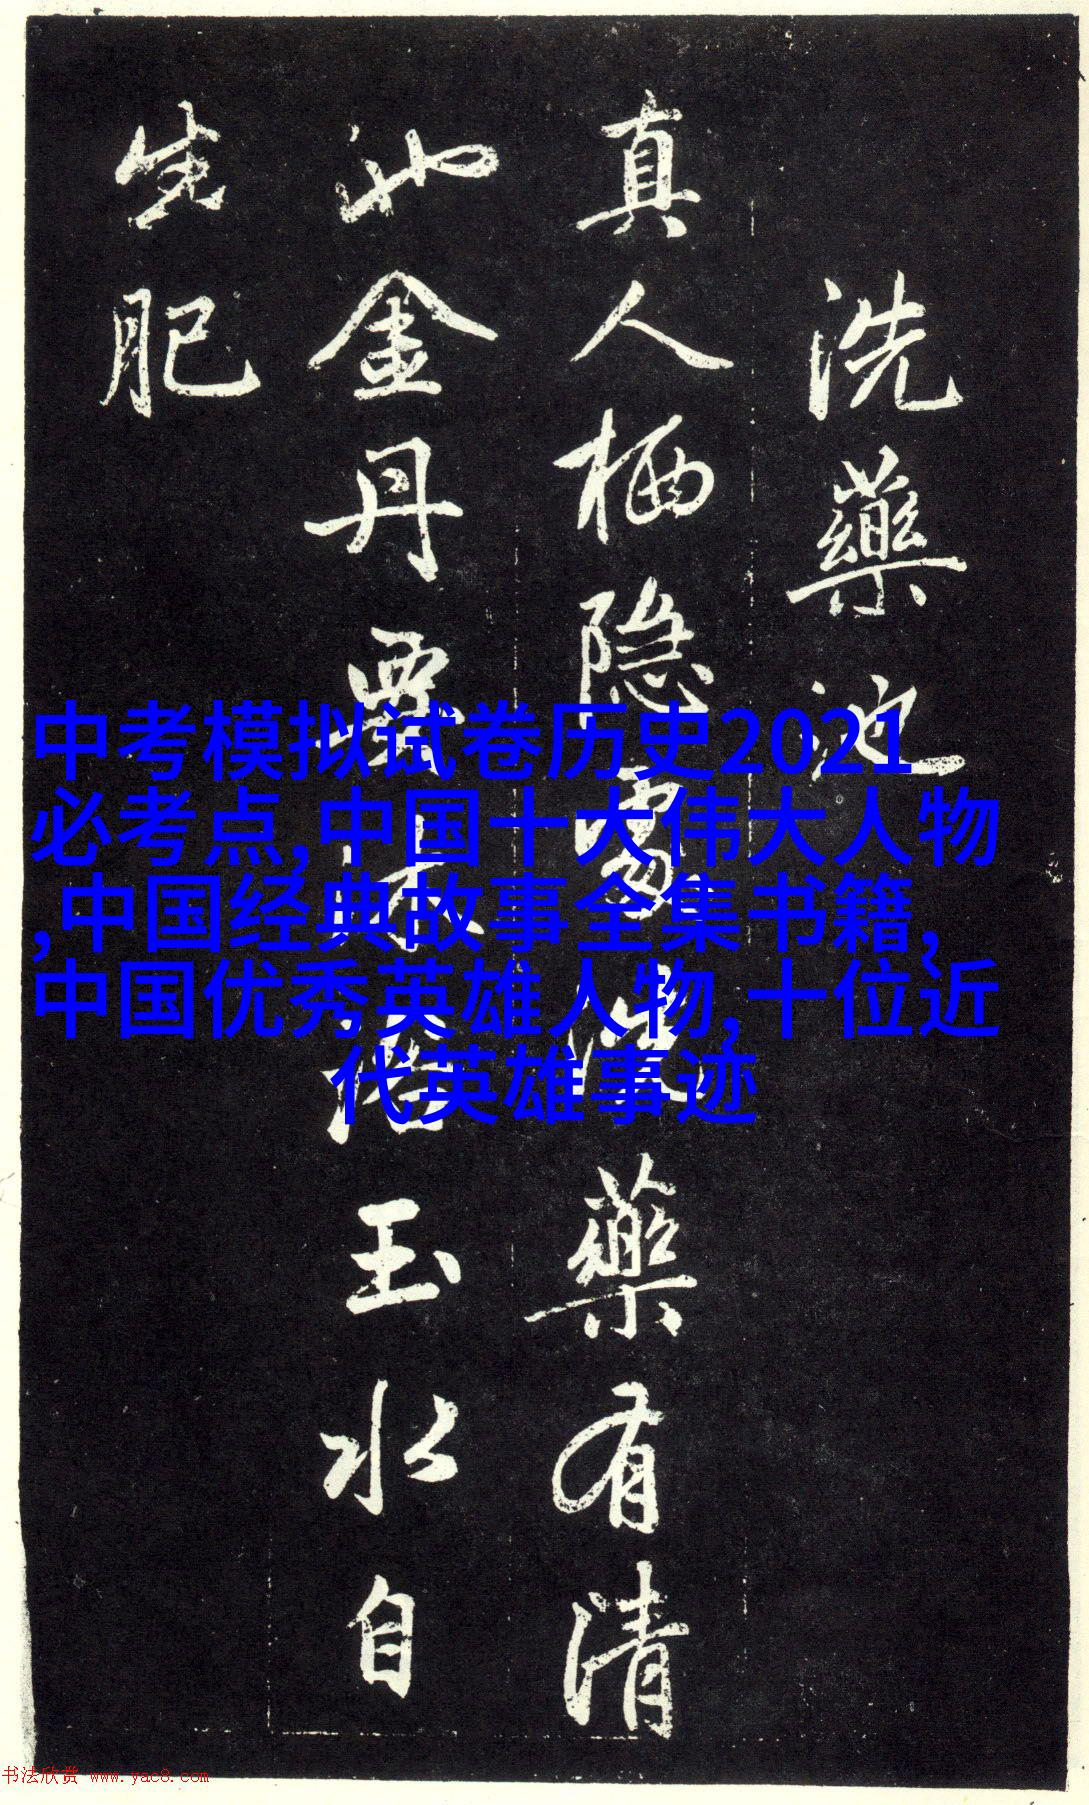 洗藥池
真人栖隐處洗藥有清
池金丹要沐浴玉水自
生肥
中考模拟试卷历史2021
必考点,中国十大伟大人物
,中国经典故事全集书籍,
中国优秀英雄人物,十位近
代英雄事迹
书法欣赏 www.yac8.com